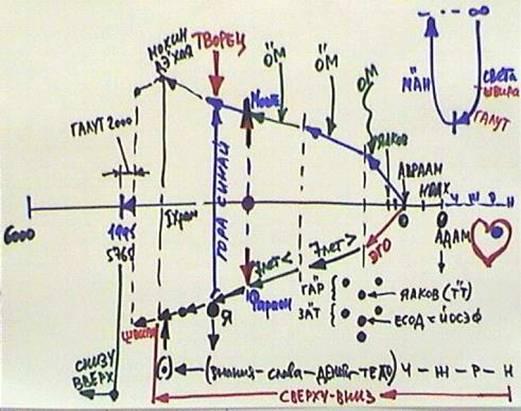 МОХИН
ДЭ ХАЯ
ТВОРЕЦ
ОМ
ОМ
ОМ
МАН
СВЕТА
ШВИРА
ГАЛУТ
ГАЛУТ 2000
МОШЕ
ЯАКОВ
АВРААМ
НОАХ
Ч Ж Р Н
6000
1995
5765
IХРАМ
ГОРА СИНАЙ
ЭГО
АДАМ
7лет<
7лет>
ФАРАОН
Я
ГАР
ЗАТ
ЯАКОВ (ТТ)
ЕСОД = ЙОСЭФ
СНИЗУ
ВВЕРХ
(•) ← (знания-слова-действ-тело) Ч - Ж - Р - Н
СВЕРХУ-ВНИЗ